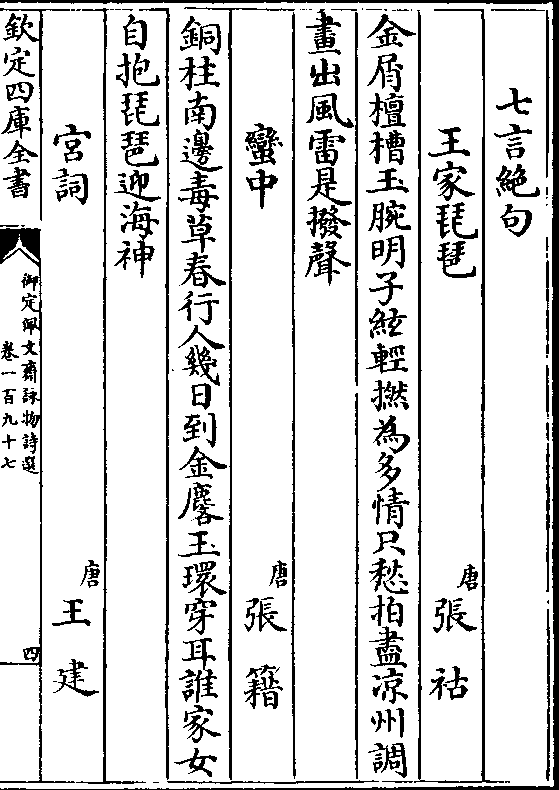 七言絶句
王家琵琶 唐 張祜
金屑檀槽玉腕明子絃輕撚為多情只愁拍盡凉州調
畫出風雷是撥聲
蠻中 唐 張籍
銅柱南邊毒草春行人幾日到金麐玉環穿耳誰家女
自抱琵琶迎海神
宮詞 唐 王建
欽定四庫全書 御定佩文齋詠物詩選 卷一百九十七 四